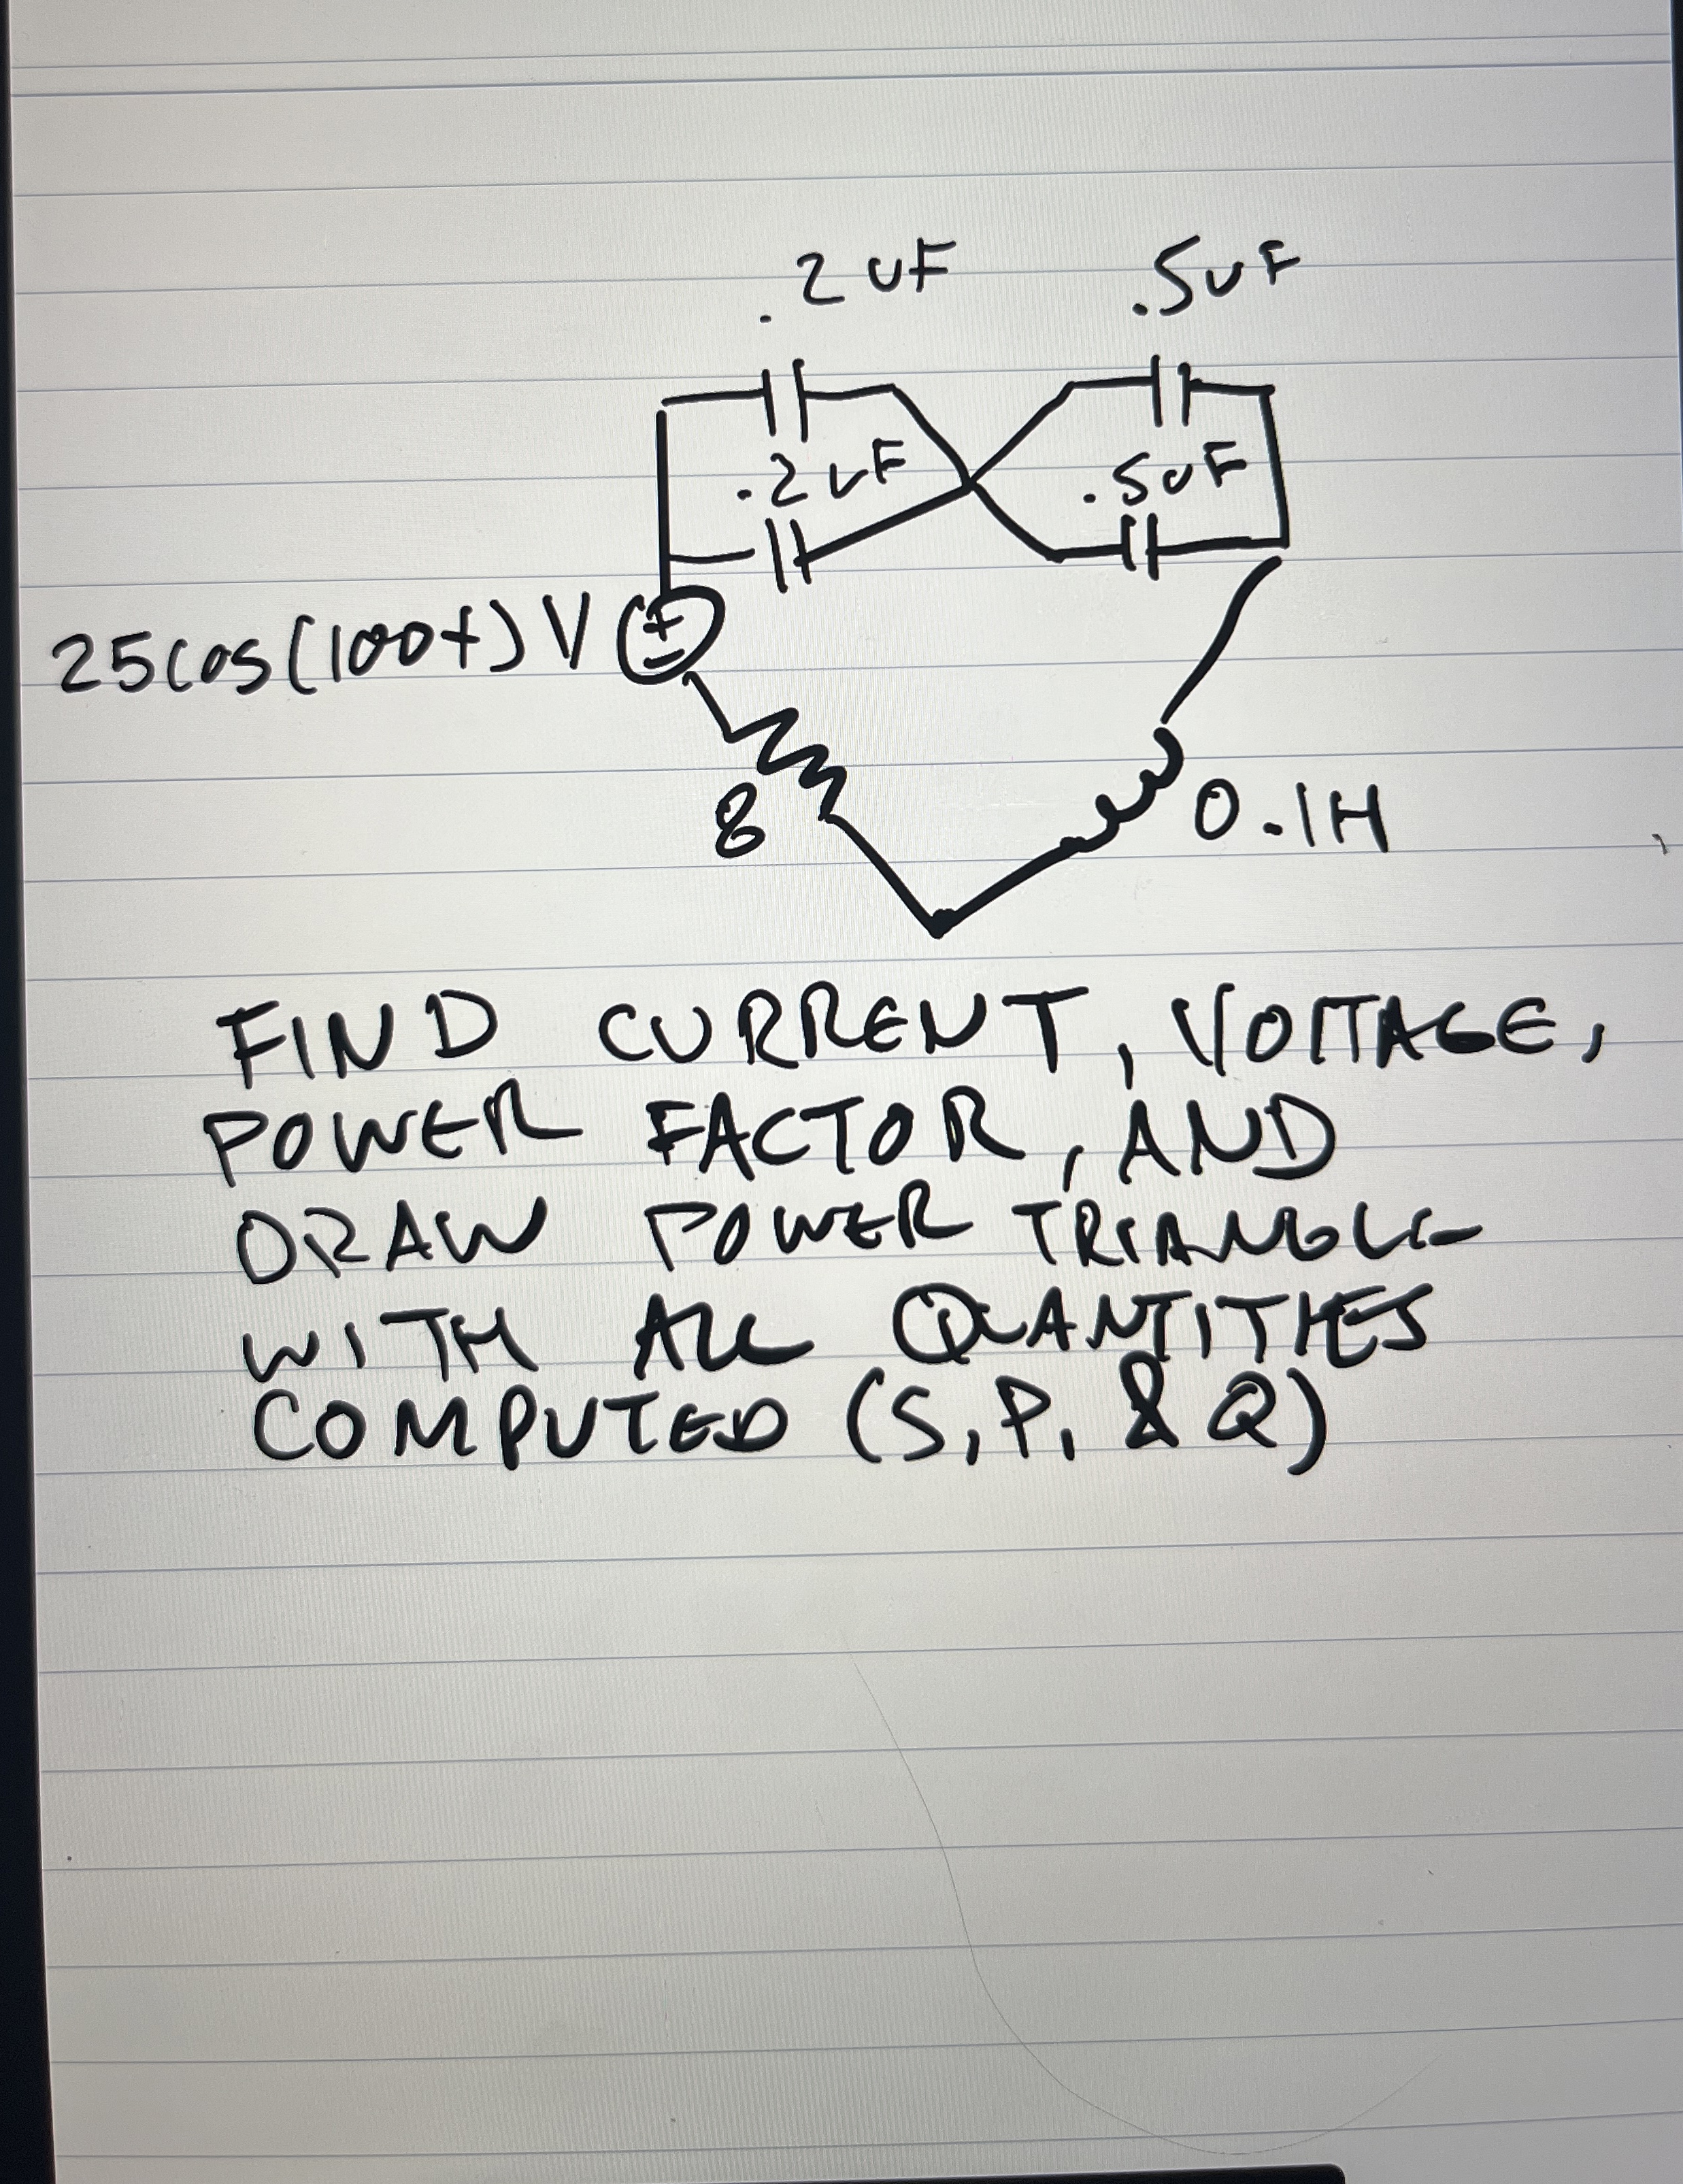 .2 uF .5uF
.2uF .5uF
25cos(100t) V + -
8 0.1H
FIND CURRENT, VOLTAGE,
POWER FACTOR, AND
DRAW POWER TRIANGLE
WITH ALL QUANTITIES
COMPUTED (S, P, & Q)